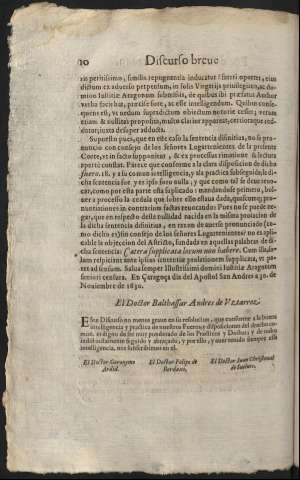 10 Discurso breue
ris peritissimo, similis repugnentia inducatur: fateri oportet, eius
dictum ex aduerso perpetuum, in solis Virgarijs priuilegiatis, ac do-
minio Iustitiæ Aragonum subiectis, de quibus ibi præfatus Author
verba faciebat, præcise fore, ac esse intelligendum. Quibus conse-
quens est, vt nedum supradictum obiectum notorie cesset; verum
etiam & nullitas propositta, multo clarior appareat, certiorque red-
datur, iuxta desuper adducta.
Supuesto pues, que en este caso la sentencia difinitiua, no se pro-
nuncio con consejo de los señores Lugartenientes de la presente
Corte, vt in facto supponitur, & ex processus rimatione & lectura
aperte constat. Parece que conforme a la clara disposicion de dicho
fuero. 18. y a su comun inteligencia, y ala practica subseguida, la di-
cha sentencia fue y es ipso foro nulla; y que como tal se deue reuo-
car, como por esta parte esta suplicado: mandandose primero, bol-
uer a processo la cedula que sobre ello estaua dada, quascumque pro-
nuntiationes in contrarium factas reuocando: Pues no se puede ne-
gar, que en respecto desta nullidad nacida en la misma prolacion de
la dicha sentencia difinitiua, en razon de auerse pronunciado (co-
mo dicho es) sin consejo de los señores Lugartenientes: no es apli-
cable la objeccion del Astricto, fundada en aquellas palabras de di-
cha sentencia: Cætera supplicata locum non habere. Cum illa do-
lam respiciant ante ipsius sententiæ prolationem supplicata, vt pa-
tet ad sensum. Salua semper Illustrissimi domini Iustitiæ Aragonum
senioris censura. En Çaragoça dia del Apostol San Andres a 30. de
Nouiembre de 1630.
El Doctor Balthassar Andres de Vztarroz.
Este Discurso no menos graue en su resolucion, que conforme a la buena
inteligencia y practica de nuestros Fueros y disposiciones del derecho co-
mun, es digno de ser muy ponderado de los Practicos y Doctos y de todos
indistinctamente seguido y abraçado; y por ello, y auer tenido siempre esta
intelligencia, nos subscribimos en el.
El Doctor Geronymo Ardid.
El Doctor Felipe de Bardaxi.
El Doctor Iuan Christoual de Suelues.